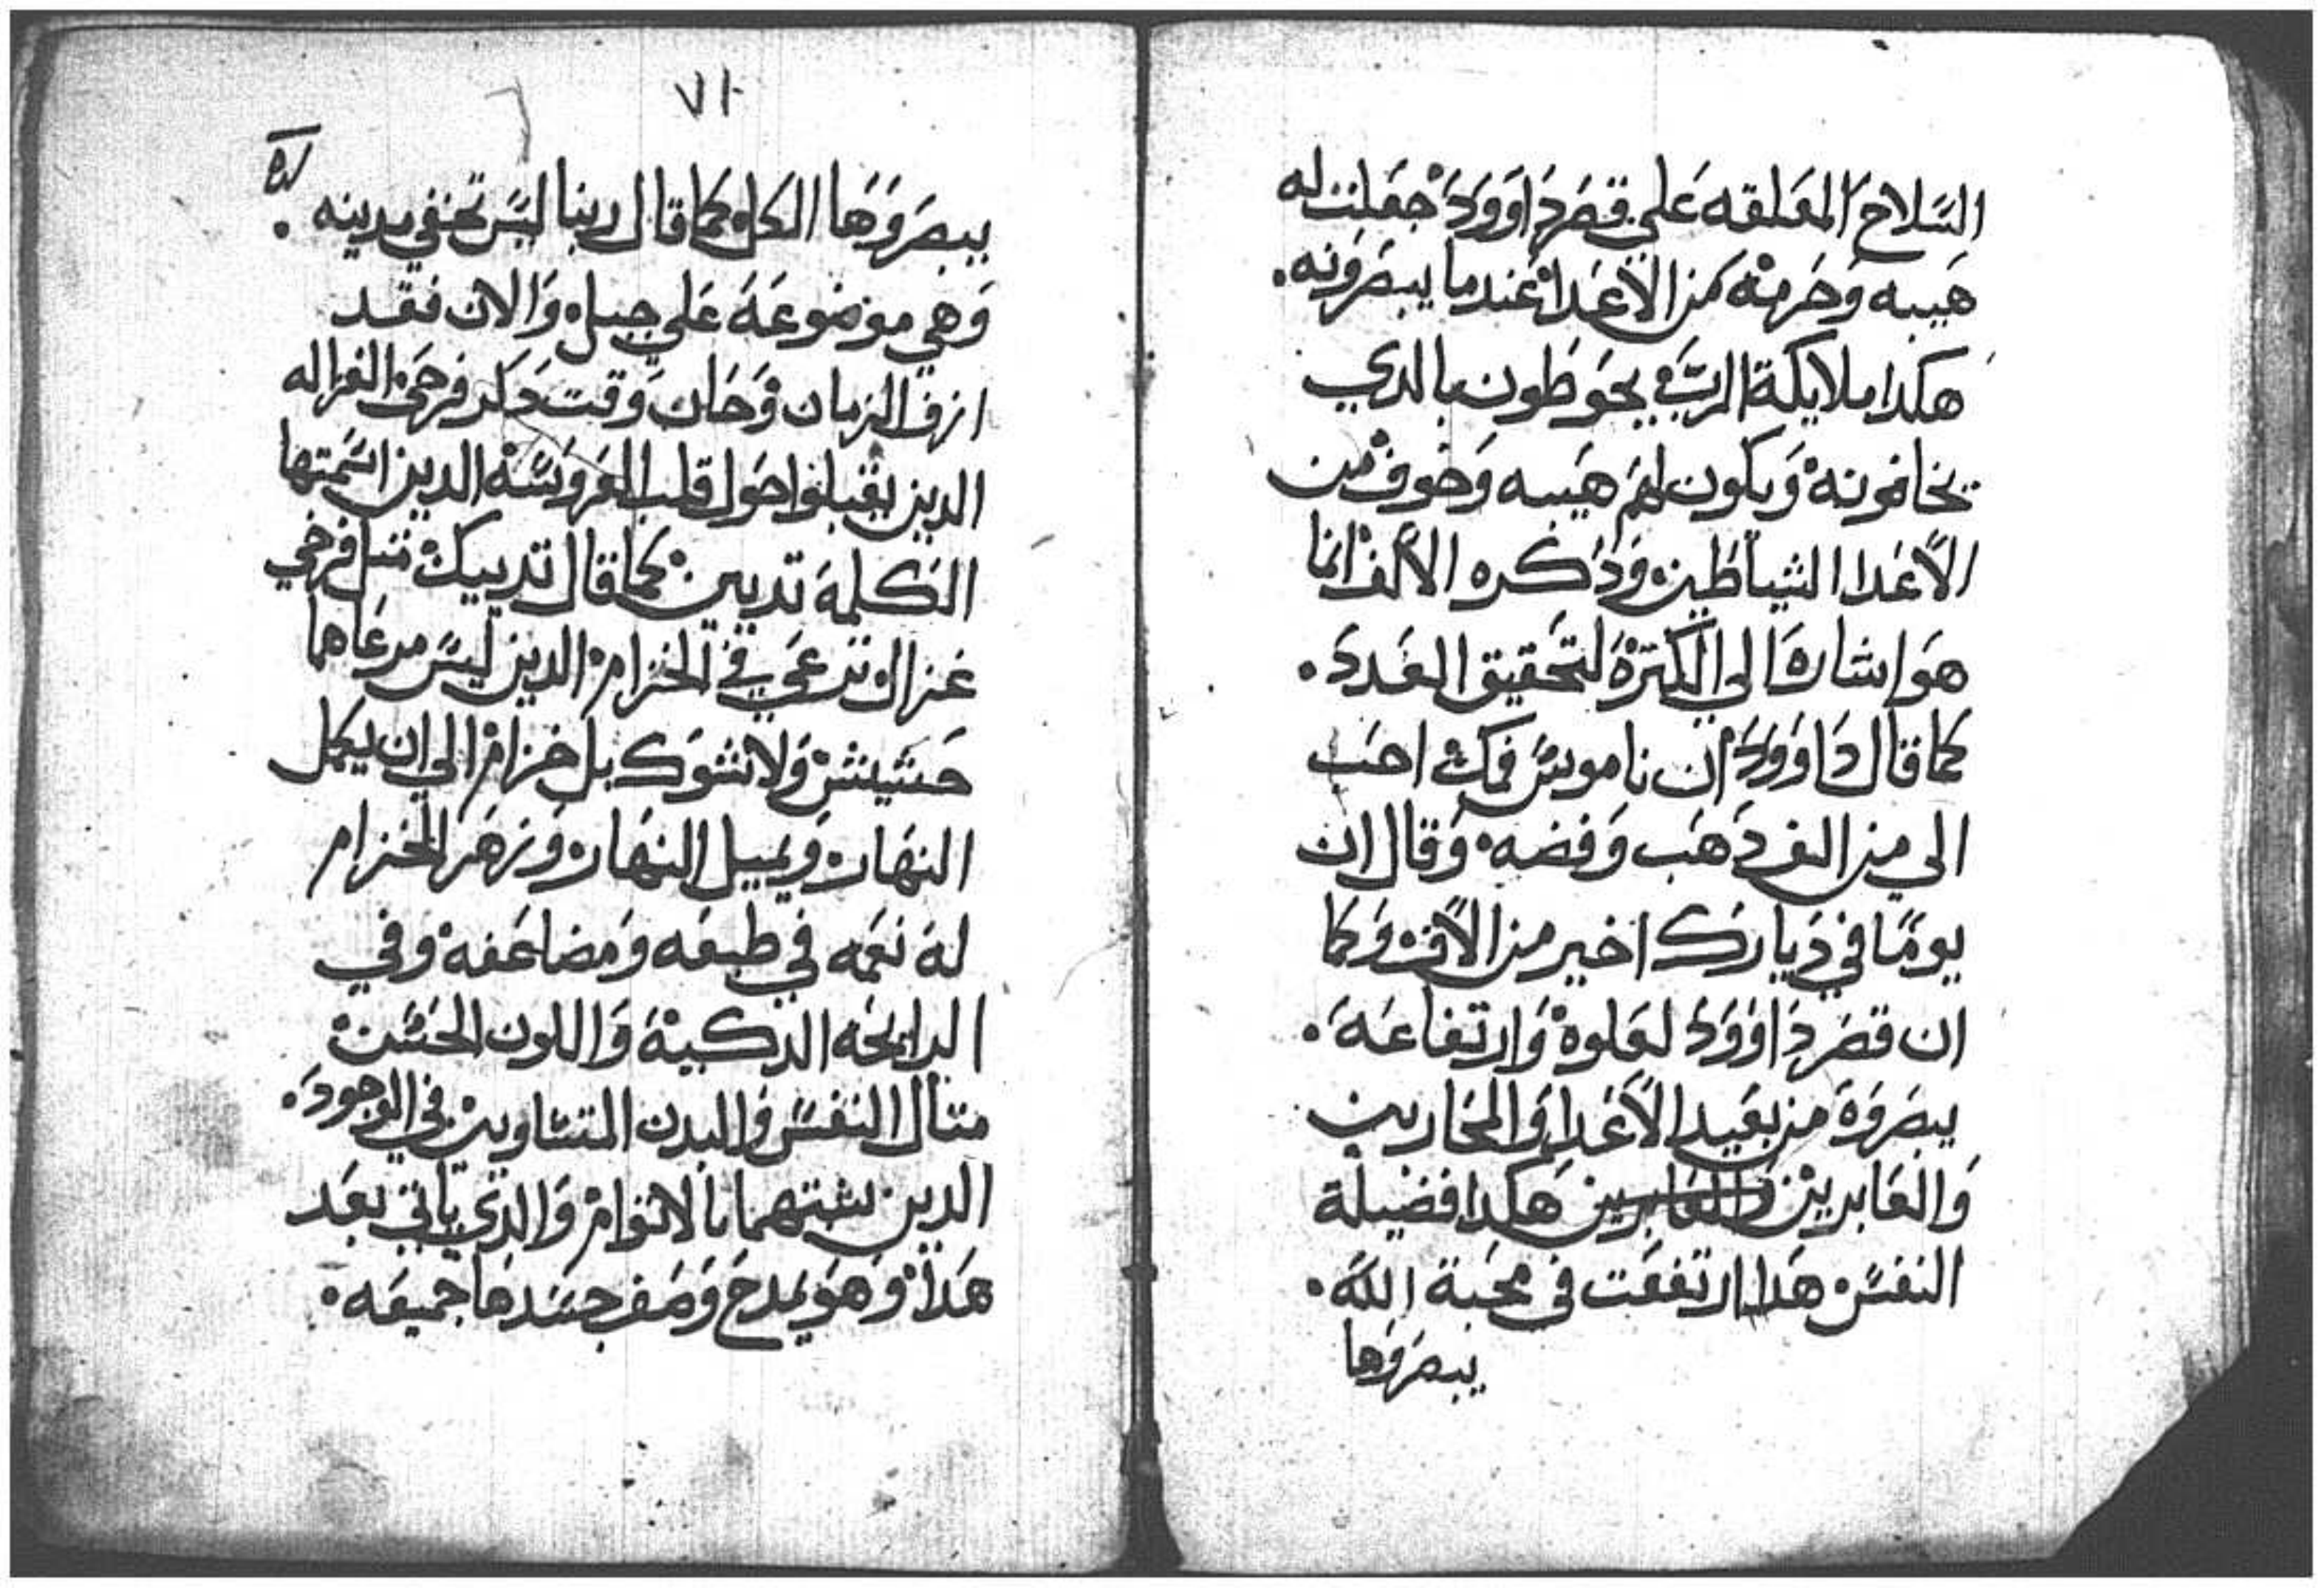 السلاح المعلقه علي قصر داوود جعلت له
هيبه وحرمه من الاعدا عندما يبصرونه.
هكدا ملايكة الرب يحوطون بالدي
يخافونه ويكون لهم هيبه وخوف من
الاعدا الشياطين ودكره الالف انما
هو اشاره الي الكتره لتحقيق العدد.
كما قال داوود ان ناموس فمك احب
الي من الف دهب وفضه وقال ان
يومًا في ديارك اخير من الاف وكما
ان قصر داوود لعلوه وارتفاعه.
يبصروه من بعيد الاعدا والمحاربين
والعابرين والعابرين هكدا فضيلة
النفس هدا ارتفعت في محبة الله.
يبصروها
٧١
يبصروها الكل كما قال ربنا ليس تخفي مدينه.
وهي موضوعه علي جبل والان فقد
ازف الزمان وحان وقت دكر فرخي الغزاله
الدين يقبلوا حول قلب العروسه الدين اسمتها
الكلمه تديين كما قال تدييك متل فرخي
غزال ترعي في الخزام الدين ليس مرعاهما
حشيش ولا شوك بل خزام الي ان يكمل
النهار ويميل النهار وزهر الخزام
له نعمه في طبعه ومضاعفه وفي
الرايحه الدكية واللون الحسن
متال النفس والبدن المتساوين في الوجود.
الدين شبههما بالاتوام والدي ياتي بعد
هدا وهو يمدح وصف جسدها جميعه.